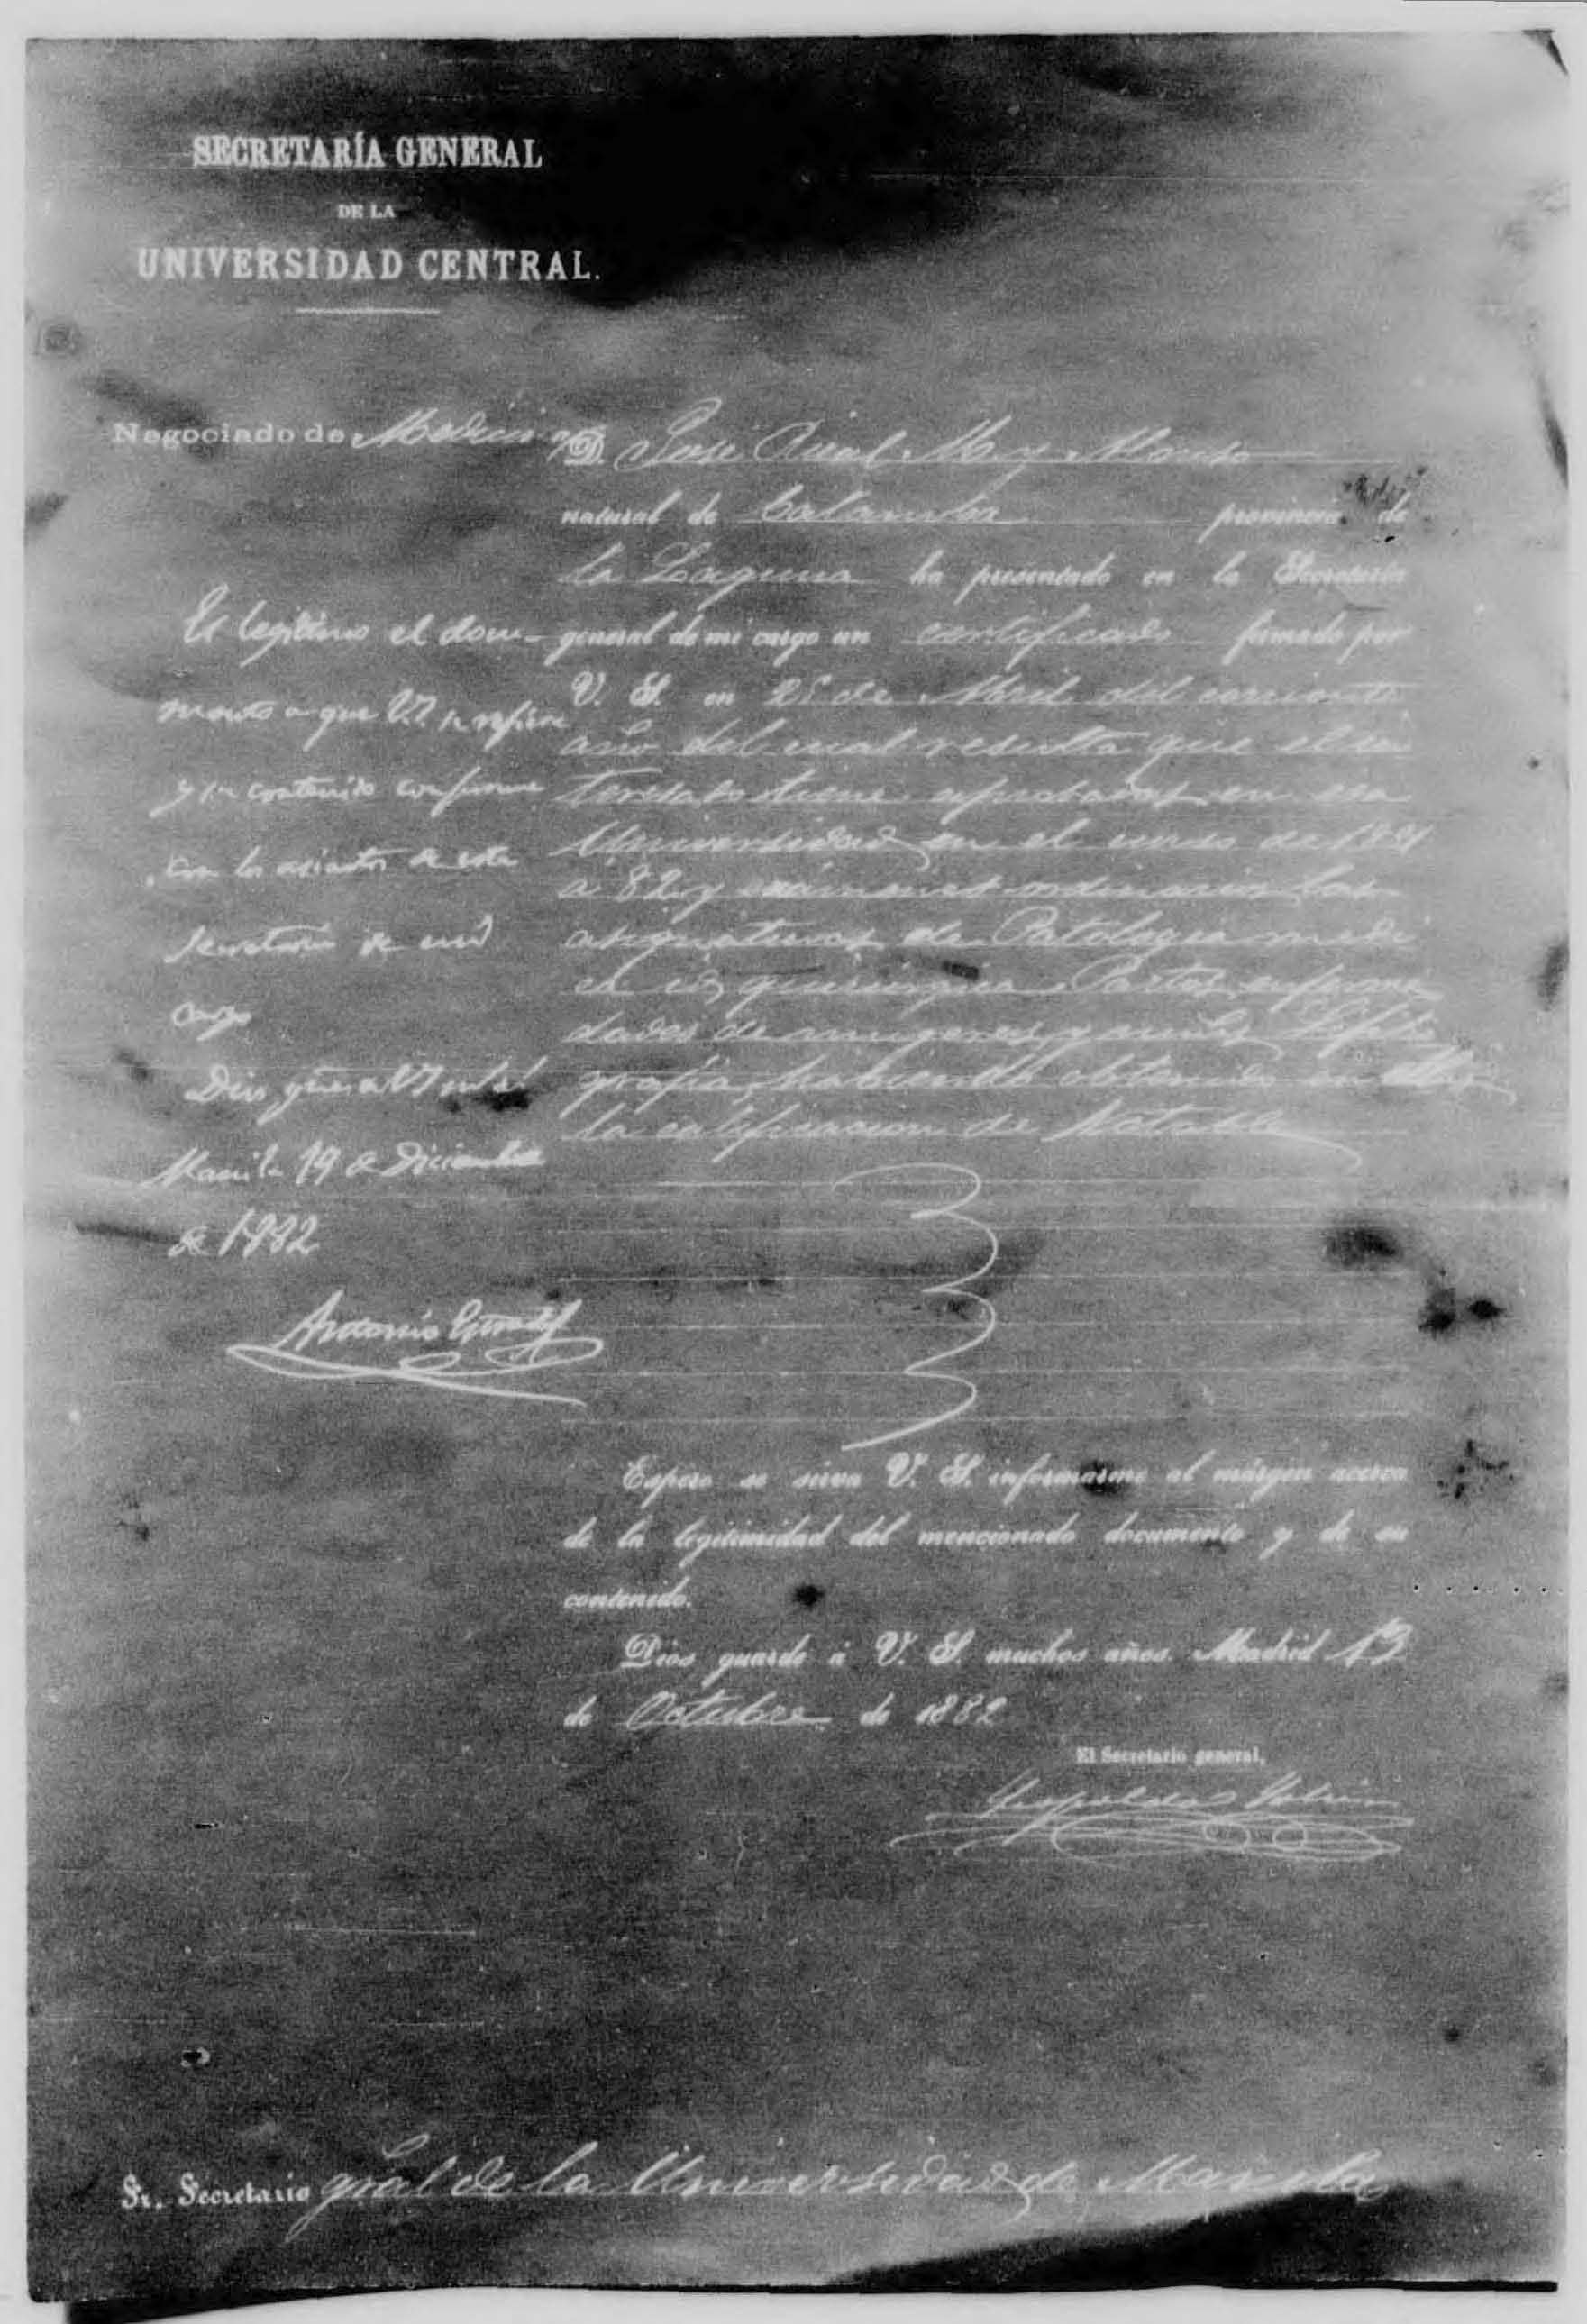 SECRETARÍA GENERAL
DE LA
UNIVERSIDAD CENTRAL.
Negociado de Medicina
D. Jose Rizal M. y Alonso
natural de Calamba provincia de
la Laguna ha presentado en la Secretaría
general de mi cargo un certificado firmado por
V. S. en de Abril del corriente
año del cual resulta que el in
teresado tiene aprobadas en esa
Universidad en el curso de 1881
a 82 y examenes ordinarios las
asignaturas de Patologia medi
ca id, quirurgica Partos enferme
dades de mugeres y niños, Sifili
grafia, habiendo obtenido en
la calificacion de Notable
Espero se sirva V. S. informarme al márgen acerca
de la legitimidad del mencionado documento y de su
contenido.
Dios guarde á V. S. muchos años. Madrid 13
de Octubre de 1882
El Secretario general,
Leopoldo
Es legitimo el docu-
mento a que V.S. se refiere
y su contenido conforme
con los asientos de esta
Secretaría de mi
cargo
Dios gue. a V.S.
Manila 19 de Diciembre
de 1882
Antonio
Sr. Secretario gral de la Universidad de Manila